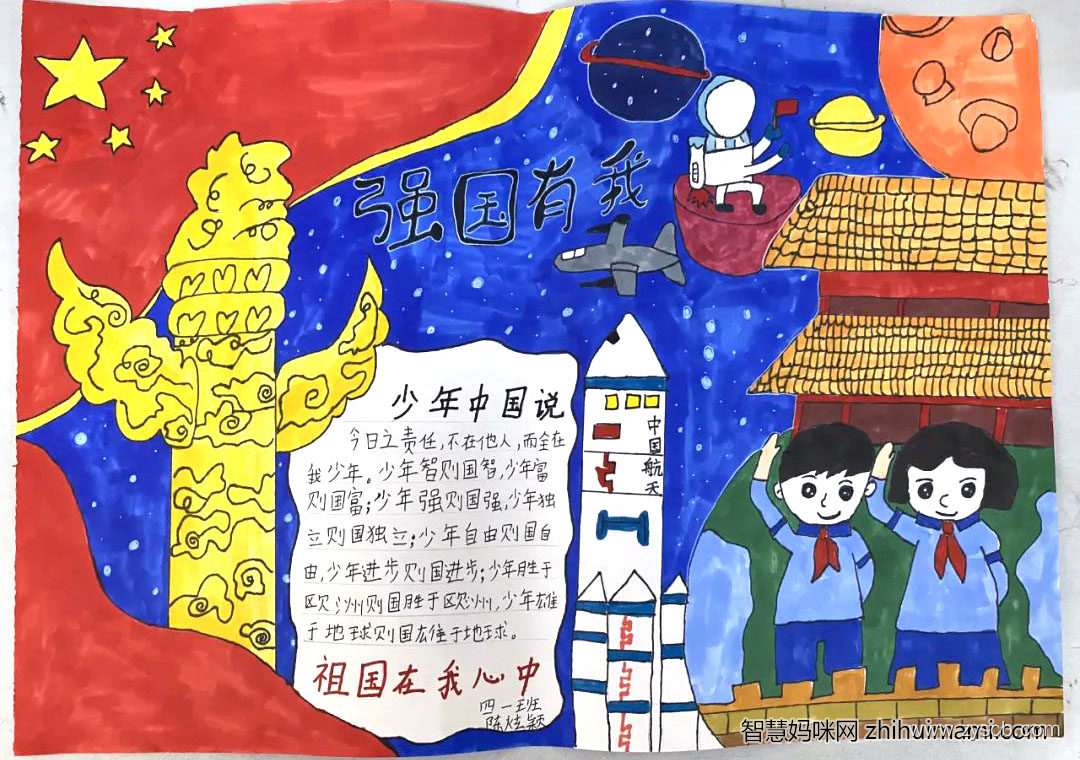 强国有我
少年中国说
今日之责任,不在他人,而全在
我少年。少年智则国智,少年富
则国富;少年强则国强,少年独
立则国独立;少年自由则国自
由,少年进步则国进步;少年胜于
欧洲则国胜于欧洲,少年雄
于地球则国雄于地球。
祖国在我心中
四一班
陈炫颖
中国航天
智慧妈咪网 zhihuiwami.com